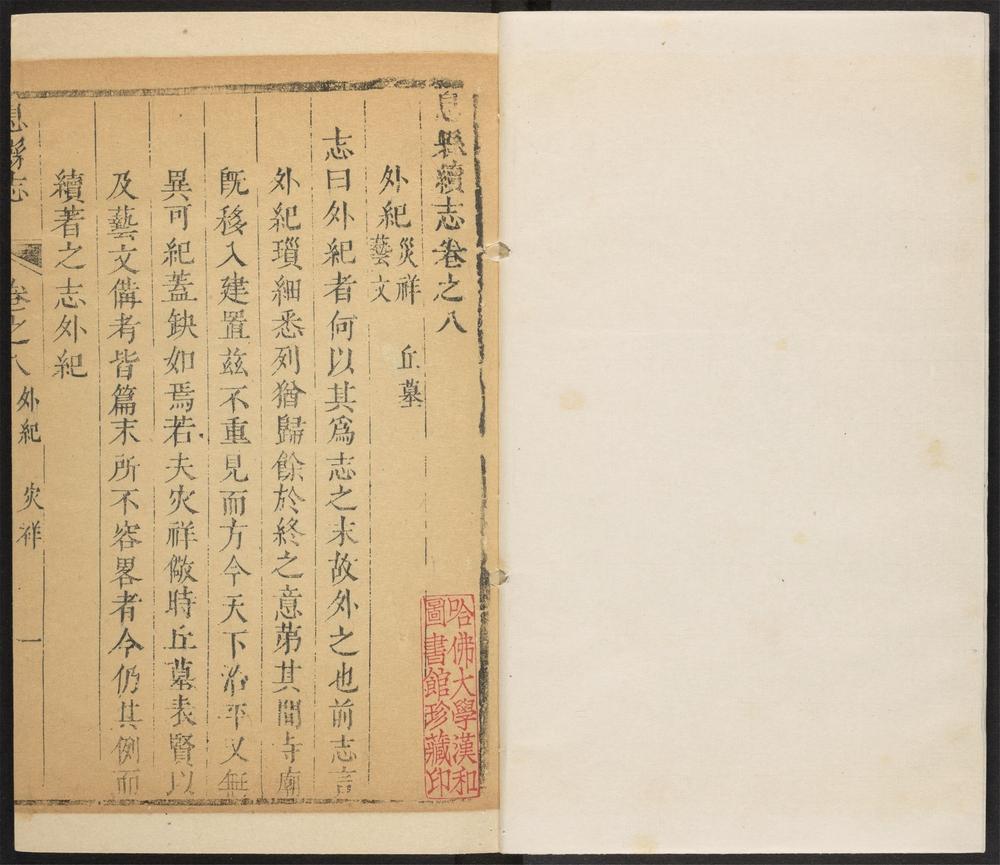 息縣續志卷之八
外紀 災祥 丘墓
藝文
志曰外紀者何以其爲志之末故外之也前志言
外紀瑣細悉列猶歸餘於終之意第其間寺廟
旣移入建置兹不重見而方今天下治平又無
異可紀蓋缺如焉若夫灾祥儆時丘墓表賢以
及藝文備考皆篇末所不容畧者今仍其例而
續著之志外紀
息縣志 卷之八 外紀 灾祥 一
哈佛大學漢和
圖書館珍藏印